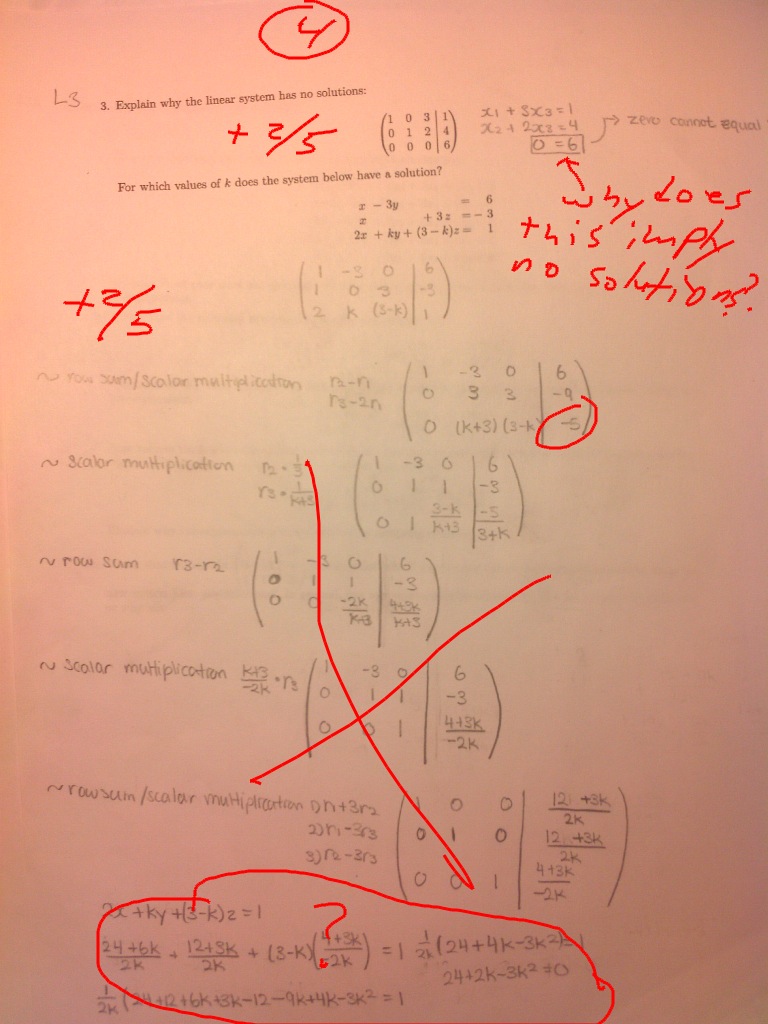 4
L3
3. Explain why the linear system has no solutions:
+2/5
1 0 3 | 1
0 1 2 | 4
0 0 0 | 6
x1 + 3x3 = 1
x2 + 2x3 = 4
0 = 6
zero cannot equal
why does
this imply
no solutions?
For which values of k does the system below have a solution?
x − 3y = 6
x + 3z = −3
2x + ky + (3 − k)z = 1
1 -3 0 | 6
1 0 3 | -3
2 k (3-k) | 1
+2/5
~ row sum/scalar multiplication r2-r1
r3-2r1
1 -3 0 | 6
0 3 3 | -9
0 (k+3) (3-k) | -5
~ scalar multiplication r2·1/3
r3·1/k+3
1 -3 0 | 6
0 1 1 | -3
0 1 3-k/k+3 | -5/3+k
~ row sum r3-r2
1 -3 0 | 6
0 1 1 | -3
0 0 -2k/k+3 | 4+3k/k+3
~ scalar multiplication k+3/-2k · r3
1 -3 0 | 6
0 1 1 | -3
0 0 1 | 4+3k/-2k
~ row sum/scalar multiplication 1) r1+3r2
2) r1-3r3
3) r2-3r3
1 0 0 | 12 +3k/2k
0 1 0 | 12 +3k/2k
0 0 1 | 4+3k/-2k
2x +ky +(3-k)z = 1
?
24+6k/2k + 12+3k/2k + (3-k)(4+3k/-2k) = 1
1/2k (24+4k-3k²)=1
24+2k-3k² ≠0
1/2k (24+12+6k+3k-12-9k+4k-3k² = 1